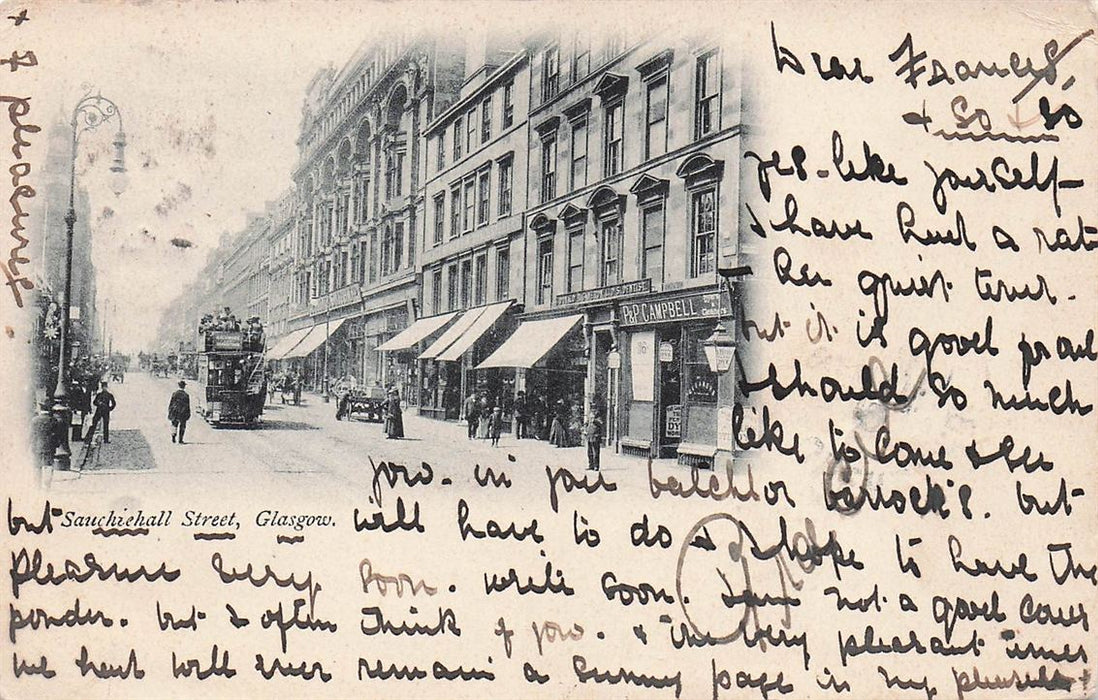 Dear Frances,
& So & So
yes - like yourself -
I have had a rat
her quiet time -
but it is good prac
I should so much
like to come & see
you. in your batchelor barrock's. but
but Sauchiehall Street, Glasgow. will have to do & I hope to have the
pleasure very soon. write soon. I am not a good cour
ponder. but I often think of you. & the very pleasant times
we had will ever remain a sunny page in my
+ 7 pleasures
P&P CAMPBELL